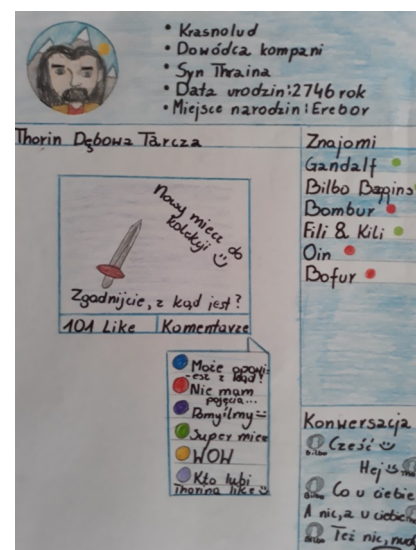 • Krasnolud
• Dowódca kompani
• Syn Thraina
• Data urodzin: 2746 rok
• Miejsce narodzin: Erebor
Thorin Dębowa Tarcza
Nowy miecz do
kolekcji
Zgadnijcie, z kąd jest?
101 Like
Komentarze
Może opowi-
esz z kąd?
Nie mam
pojęcia...
Pomyślmy
Super miecz
WOW
Kto lubi
Thorina like
Znajomi
Gandalf
Bilbo Baggins
Bombur
Fili & Kili
Oin
Bofur
Konwersacja
Bilbo Cześć
Hej
Bilbo Co u ciebie
A nic, a u ciebie
Bilbo Też nic,